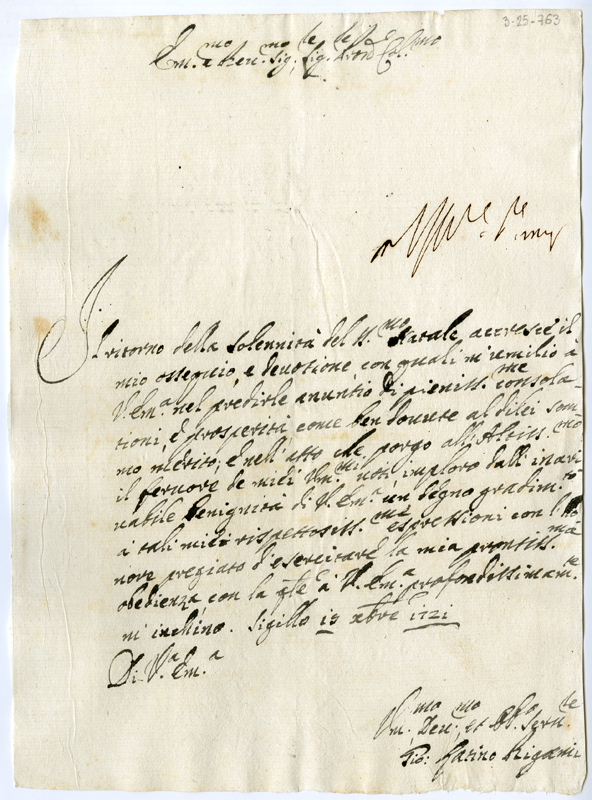 3-25-763
Em.mo e Reu.mo Sig.re Sig.re
Il ritorno della solennità del SS.mo Natale, accresce il
mio ossequio, e deuotione con quali m'umilio à
V. Em.a nel predirle anuntio di pieniss.me consola-
tioni, e prosperità come ben douute al dilei som-
mo merito, e nell'atto che porgo all'Altiss.mo
il feruore de miei Um.mi uoti, imploro dall'inari-
uabile benignità di V. Em.a un degno gradim.to
à tali miei rispettosiss.me espressioni con l'ho
nore pregiato d'esercitare la mia prontiss.ma
obedienza con la q.le à V. Em.a profondissimam.te
m'inchino. Sigillo 15 xbre 1721
Di V.a Em.a
Um.mo Deu.mo et Obb.o Seru.te
Gio: Rigami